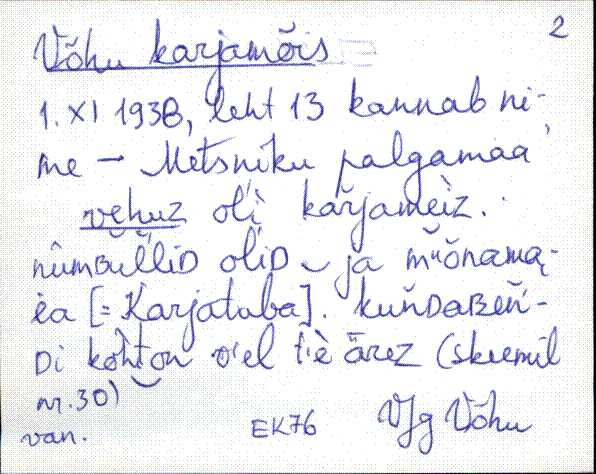 2
Võhu karjamõis
1. XI 1938, leht 13 kannab ni-
me – Metsniku palgamaa
vehuz oli karjameiz.
nûmʙulliᴅ oliᴅ ja
[= Karjatuba]. kuńᴅaʙeń-
ᴅi kohton o'el tiè ärez (skeemil
nr. 30)
van. EK76 VJg Võhu